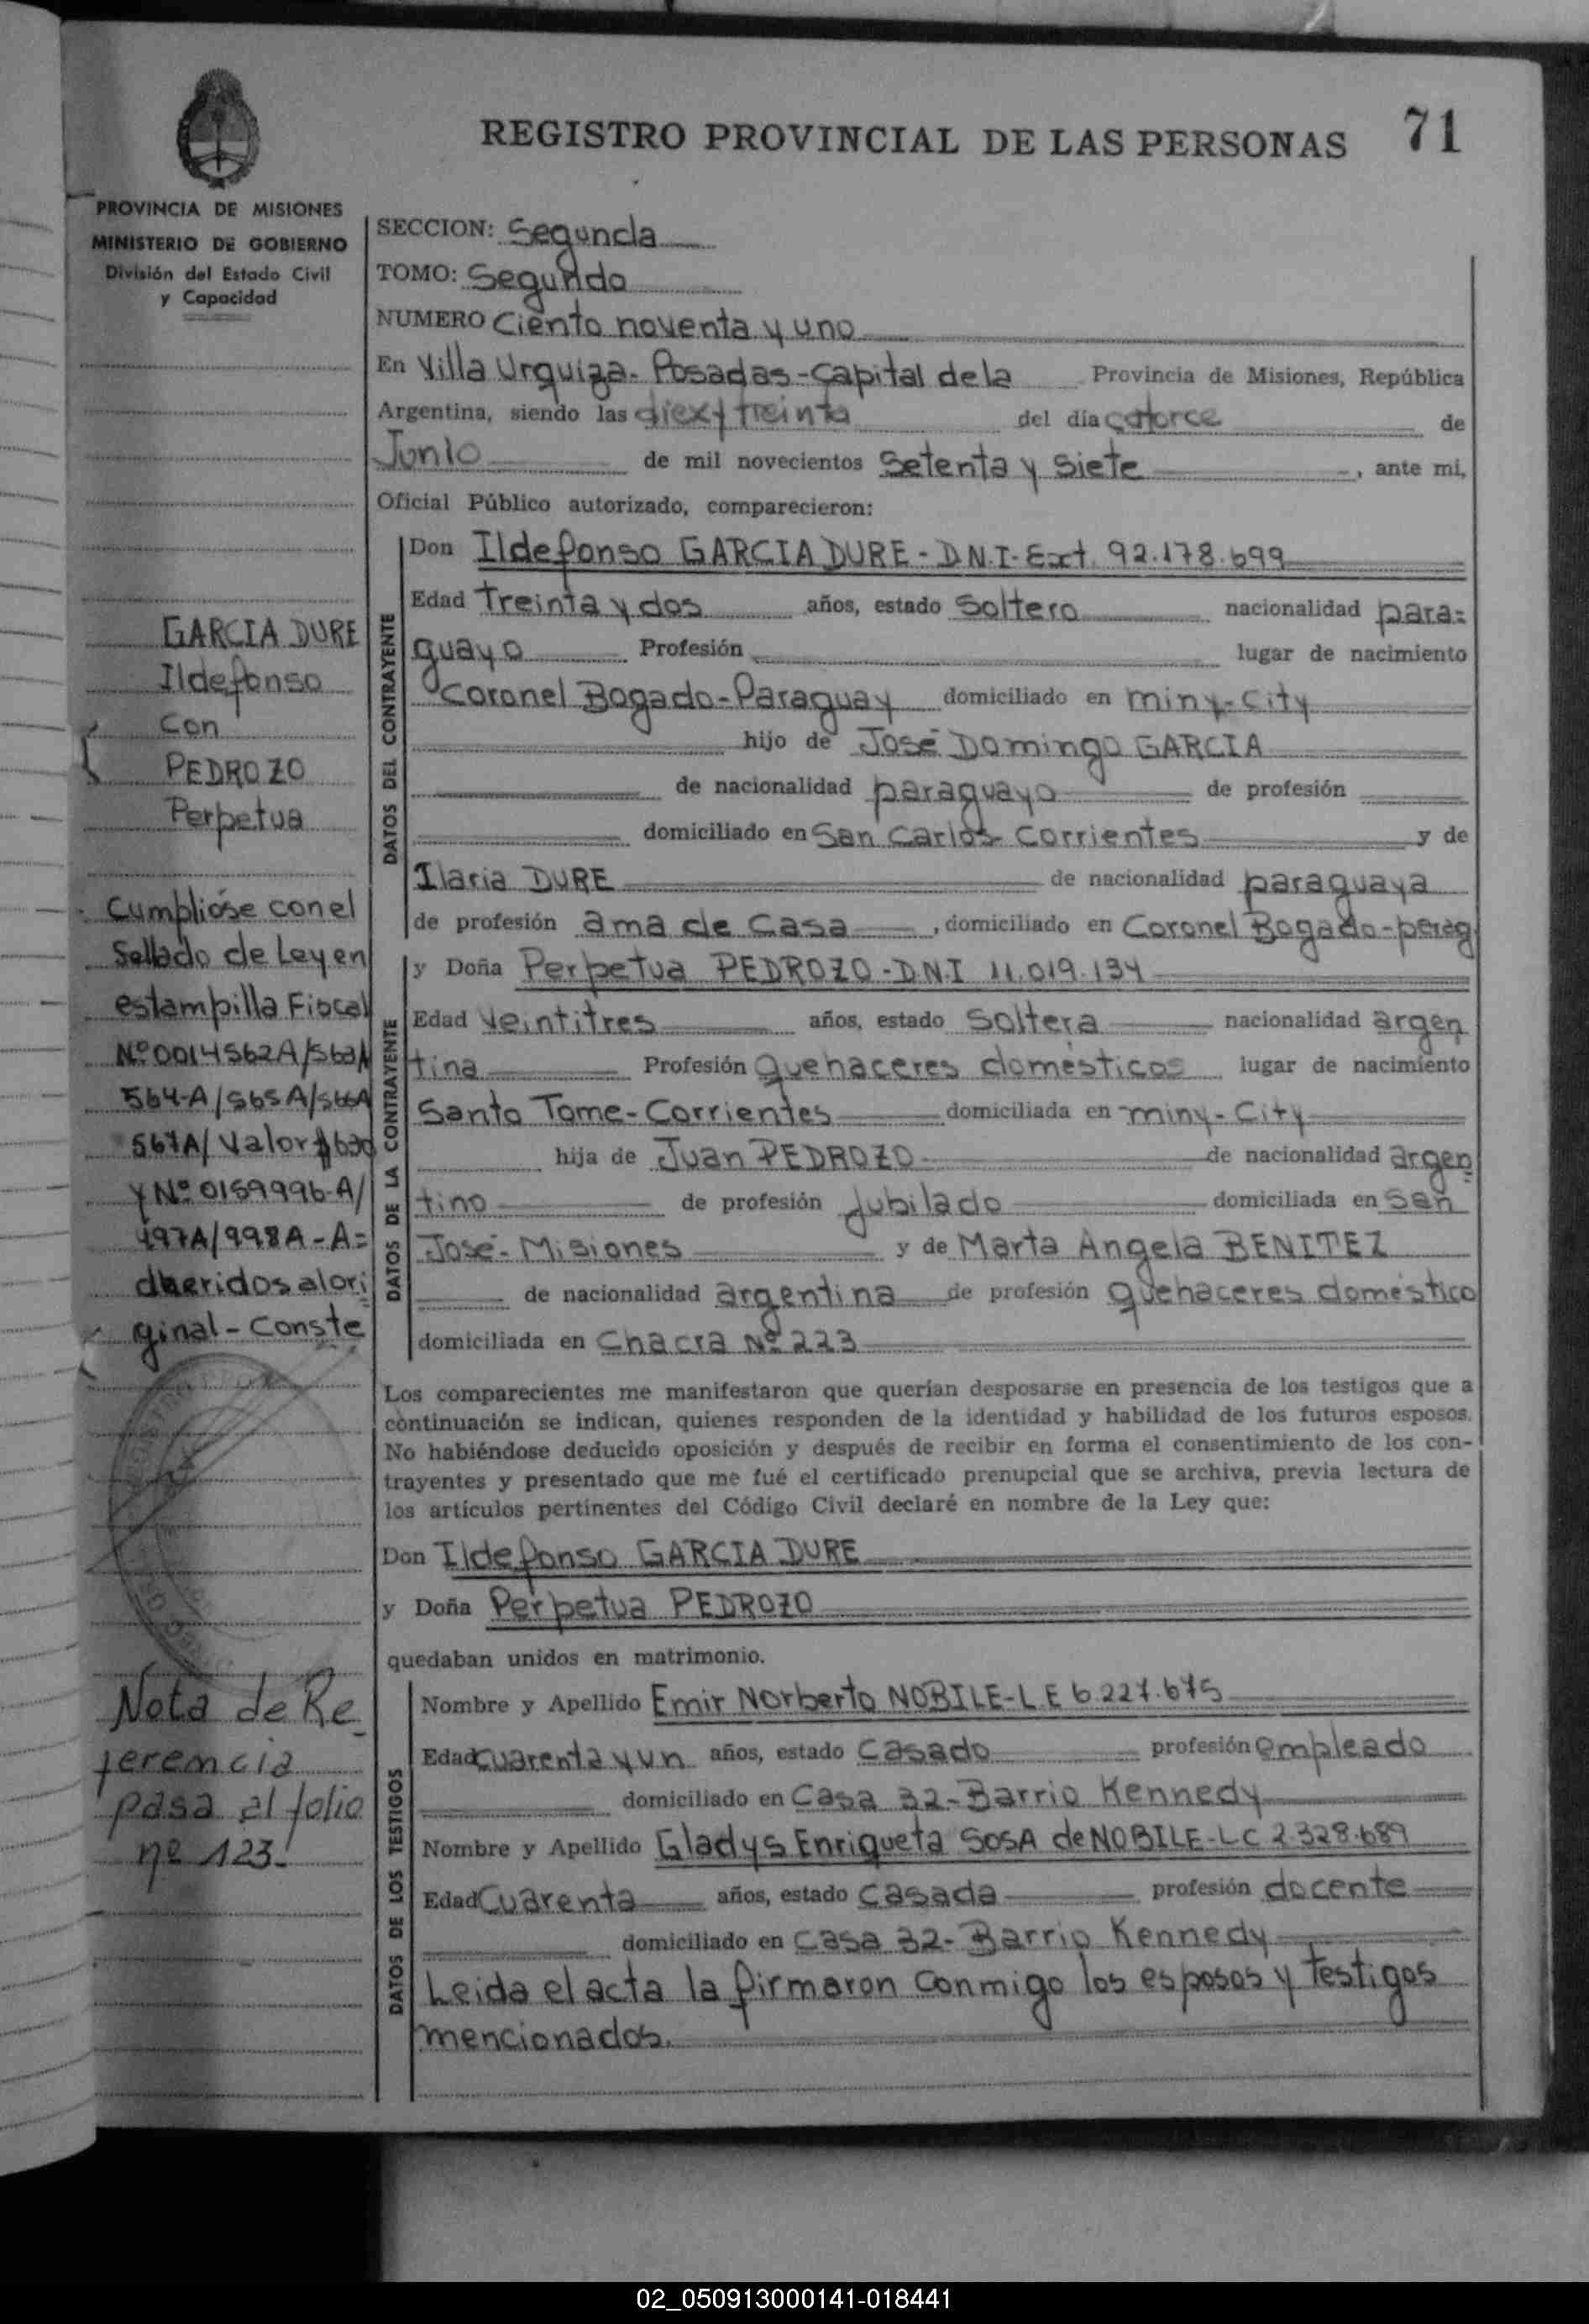 REGISTRO PROVINCIAL DE LAS PERSONAS 71
PROVINCIA DE MISIONES
MINISTERIO DE GOBIERNO
División del Estado Civil
y Capacidad
SECCION: Segunda
TOMO: Segundo
NUMERO Ciento noventa y uno
En Villa Urquiza- Posadas-Capital de la Provincia de Misiones, República
Argentina, siendo las diez y treinta del día catorce de
Junio de mil novecientos Setenta y siete, ante mi,
Oficial Público autorizado, comparecieron:
DATOS DEL CONTRAYENTE
Don Ildefonso GARCIA DURE - D.N.I- Ext. 92.178.699
Edad Treinta y dos años, estado Soltero nacionalidad para=
guayo Profesión lugar de nacimiento
Coronel Bogado-Paraguay domiciliado en miny-City
hijo de José Domingo GARCIA
de nacionalidad paraguayo de profesión
domiciliado en San Carlos- Corrientes y de
Ilaria DURE de nacionalidad paraguaya
de profesión ama de casa, domiciliado en Coronel Bogado-
DATOS DE LA CONTRAYENTE
y Doña Perpetua PEDROZO-D.N.I 11.019.134
Edad Veintitres años, estado Soltera nacionalidad argen
tina Profesión Quehaceres domésticos lugar de nacimiento
Santo Tome-Corrientes domiciliada en miny-City
hija de Juan PEDROZO de nacionalidad argen
tino de profesión Jubilado domiciliada en San
José- Misiones y de Marta Angela BENITEZ
de nacionalidad argentina de profesión quehaceres doméstico
domiciliada en Chacra Nº 223
Los comparecientes me manifestaron que querían desposarse en presencia de los testigos que a
continuación se indican, quienes responden de la identidad y habilidad de los futuros esposos.
No habiéndose deducido oposición y después de recibir en forma el consentimiento de los con-
trayentes y presentado que me fué el certificado prenupcial que se archiva, previa lectura de
los artículos pertinentes del Código Civil declaré en nombre de la Ley que:
Don Ildefonso GARCIA DURE
y Doña Perpetua PEDROZO
quedaban unidos en matrimonio.
DATOS DE LOS TESTIGOS
Nombre y Apellido Emir Norberto NOBILE-L.E 6.227.675
Edad Cuarenta y un años, estado Casado profesión empleado
domiciliado en Casa 32-Barrio Kennedy
Nombre y Apellido Gladys Enriqueta SOSA de NOBILE-LC 2.328.689
Edad Cuarenta años, estado Casada profesión docente
domiciliado en Casa 32- Barrio Kennedy
Leida el acta la firmaron conmigo los esposos y testigos
mencionados.
GARCIA DURE
Ildefonso
Con
PEDROZO
Perpetua
Cumplióse con el
Sellado de Ley en
estampilla Fiscal
Nº 0014562A/563A
564-A/565A/566A
567A/ Valor $630
y Nº 0159996-A/
997A/998A-A=
dheridos al ori
ginal-Conste
Nota de Re
ferencia
pasa al folio
nº 123.
02_050913000141-018441